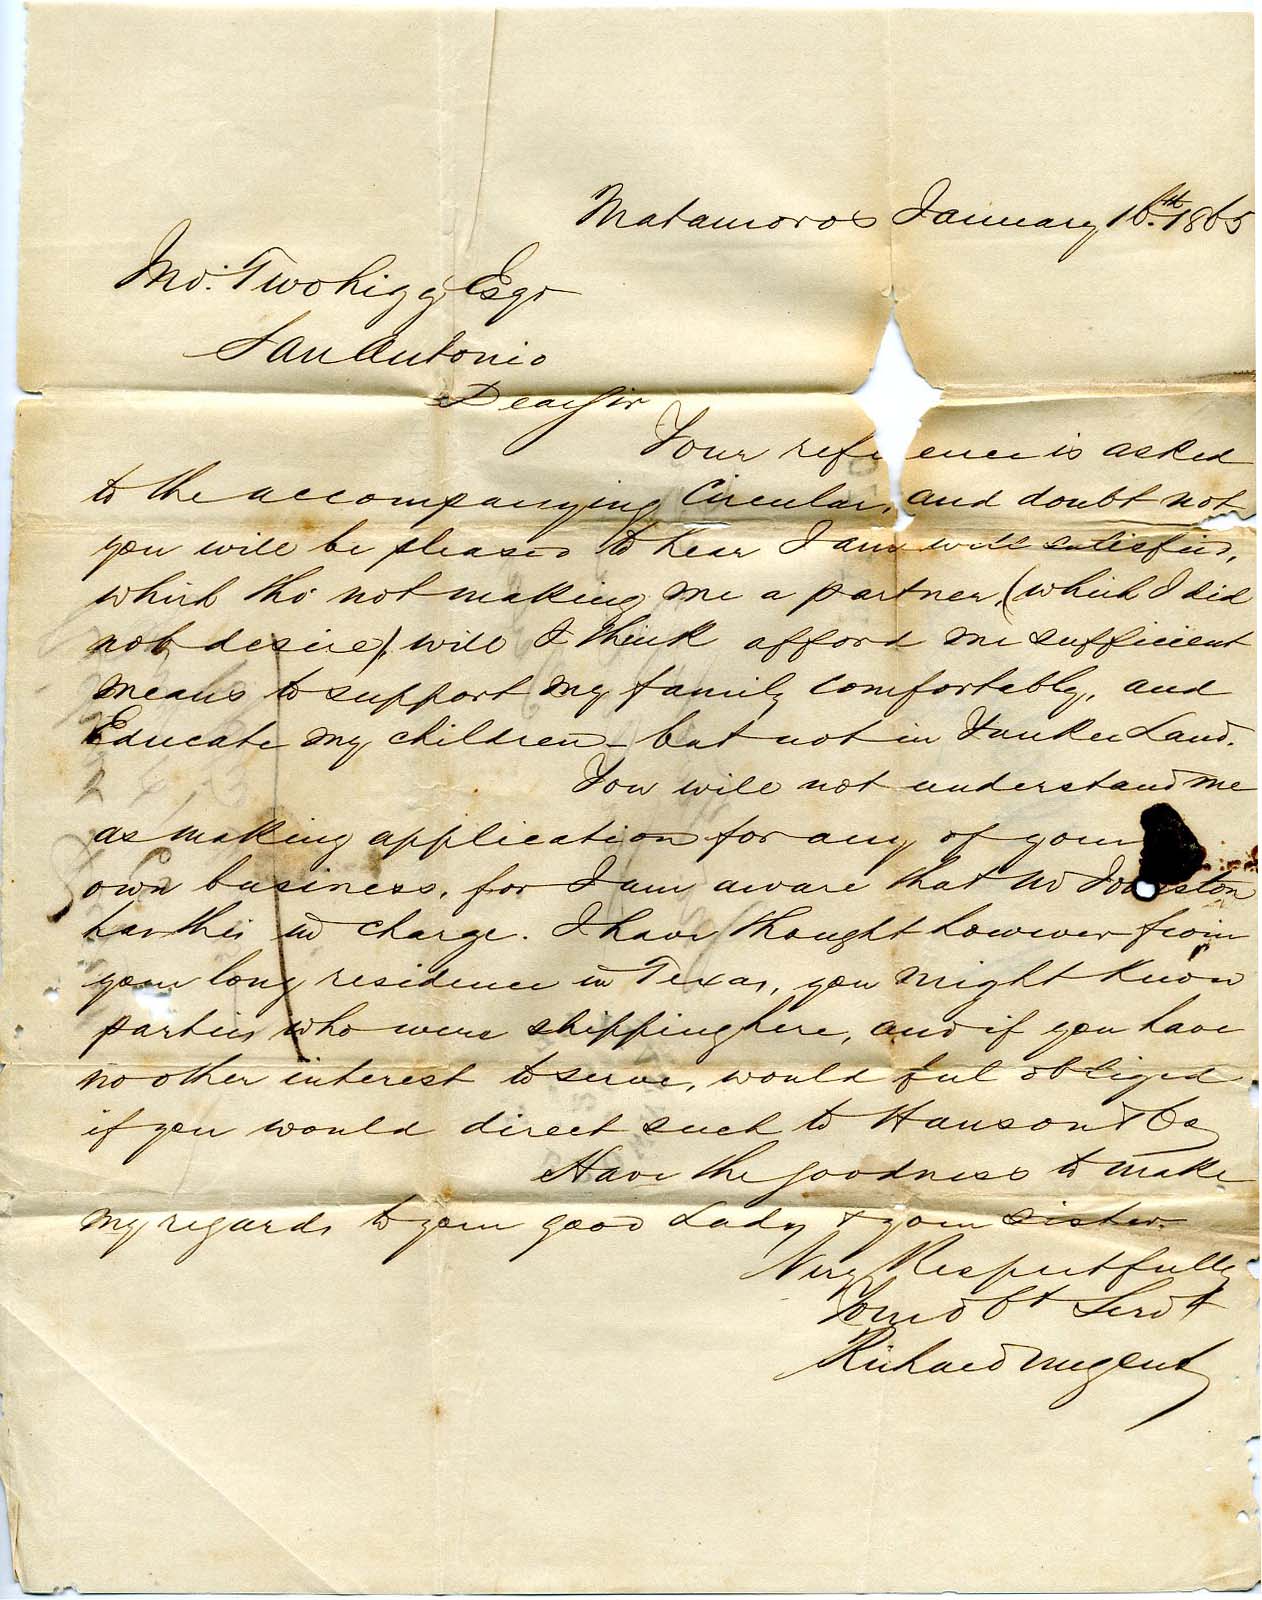 Matamoros January 16th. 1865
Jno. Twohigg Esqr
San Antonio
Dear Sir
Your refe ence is asked
to the accompanying Circular, and doubt not
you will be pleased to hear I am well satisfied,
which tho' not making me a partner, (which I did
not desire), will I think afford me sufficient
means to support my family comfortably, and
Educate my children - but not in Yankee Land.
You will not understand me
as making application for any of your
own business, for I am aware that Mr
has this in charge. I have thought however from
your long residence in Texas, you might know
parties who were shipping here, and if you have
no other interest to serve, would feel obliged
if you would direct such to Hanson & Co
Have the goodness to make
my regards to your good Lady & your sister.
Very Respectfully
Your Obt Servt
Richard Nugent